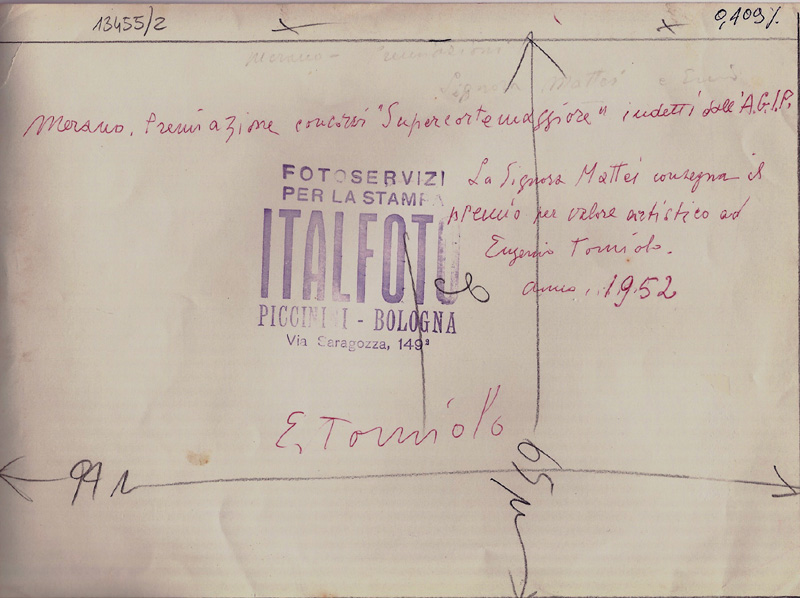 13455/2
0,409%
Merano - Premiazioni
Signora Mattei e Enrico
Merano. Premiazione concorsi "Supercortemaggiore" indetti dall'A.G.I.P.
La Signora Mattei consegna il
premio per valore artistico ad
Eugenio Tomiolo.
anno, 1952
FOTOSERVIZI
PER LA STAMPA
ITALFOTO
PICCININI - BOLOGNA
Via Saragozza, 149ª
E. Tomiolo